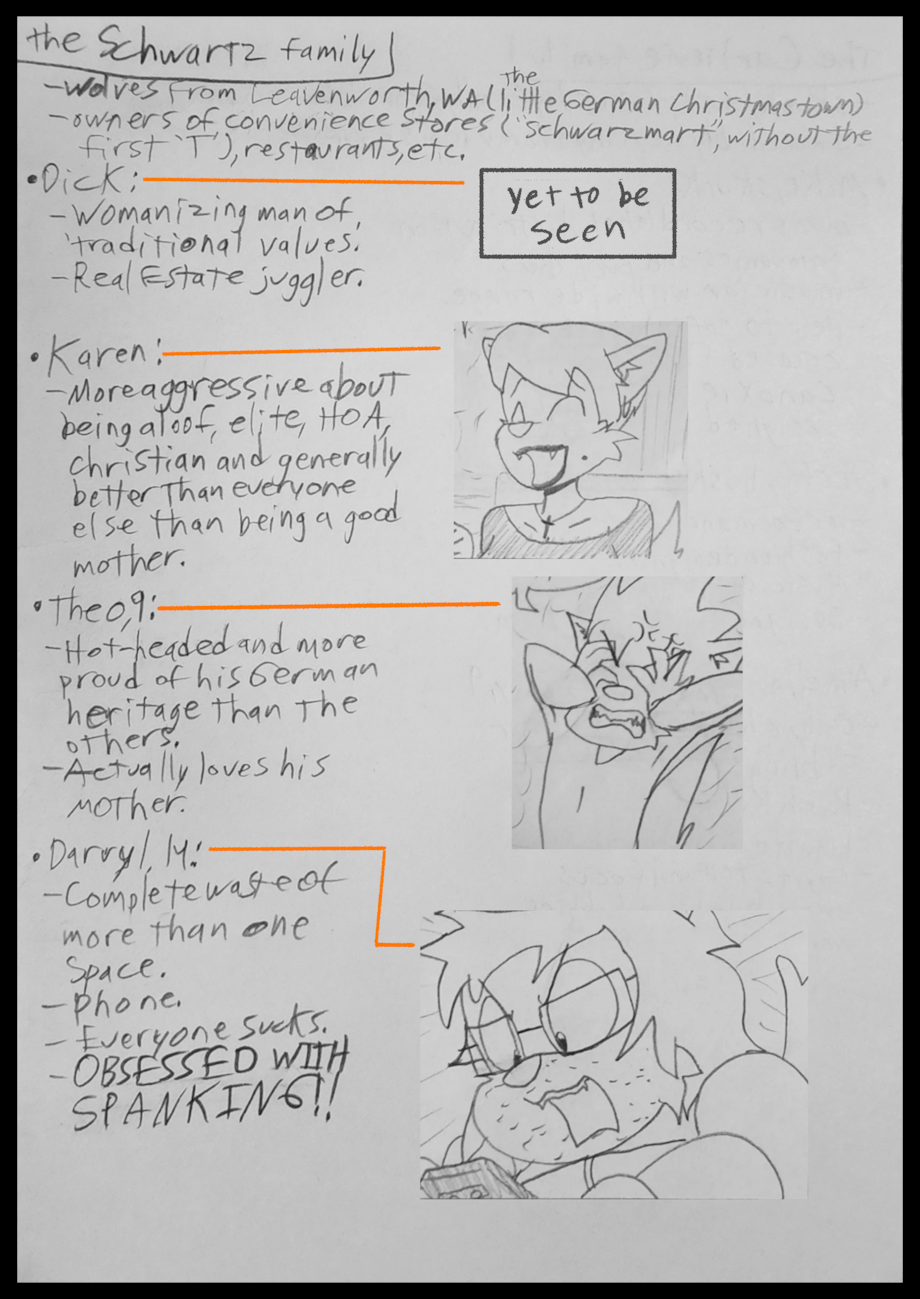 the Schwartz family
-Wolves from Leavenworth, WA (The little German Christmas town)
-owners of convenience stores ("schwarzmart", without the
first 'T'), restaurants, etc.
• Dick:
yet to be
seen
-Womanizing man of
traditional values.
-Real Estate juggler.
• Karen:
-More aggressive about
being aloof, elite, HOA,
christian and generally
better than everyone
else than being a good
mother.
• Theo, 9:
-Hot-headed and more
proud of his German
heritage than the
others.
-Actually loves his
mother.
• Darryl, 14:
-Complete waste of
more than one
space.
-Phone.
-Everyone sucks.
-OBSESSED WITH
SPANKING!!